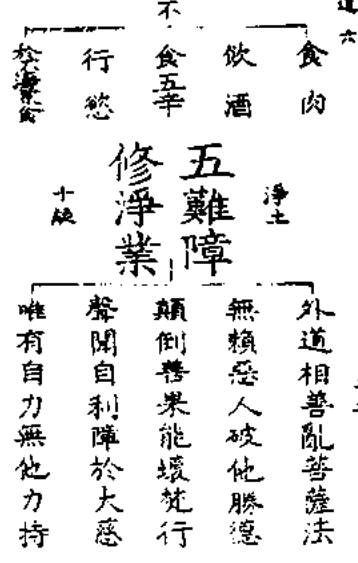 六
不
食肉
飲酒
食五辛
行慾
淨土
五難障
修淨業
十
外道相善亂菩薩法
無賴惡人破他勝德
顛倒善果能壞梵行
聲聞自利障於大慈
唯有自力無他力持